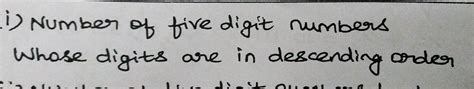 i) Number of five digit numbers
Whose digits are in descending order